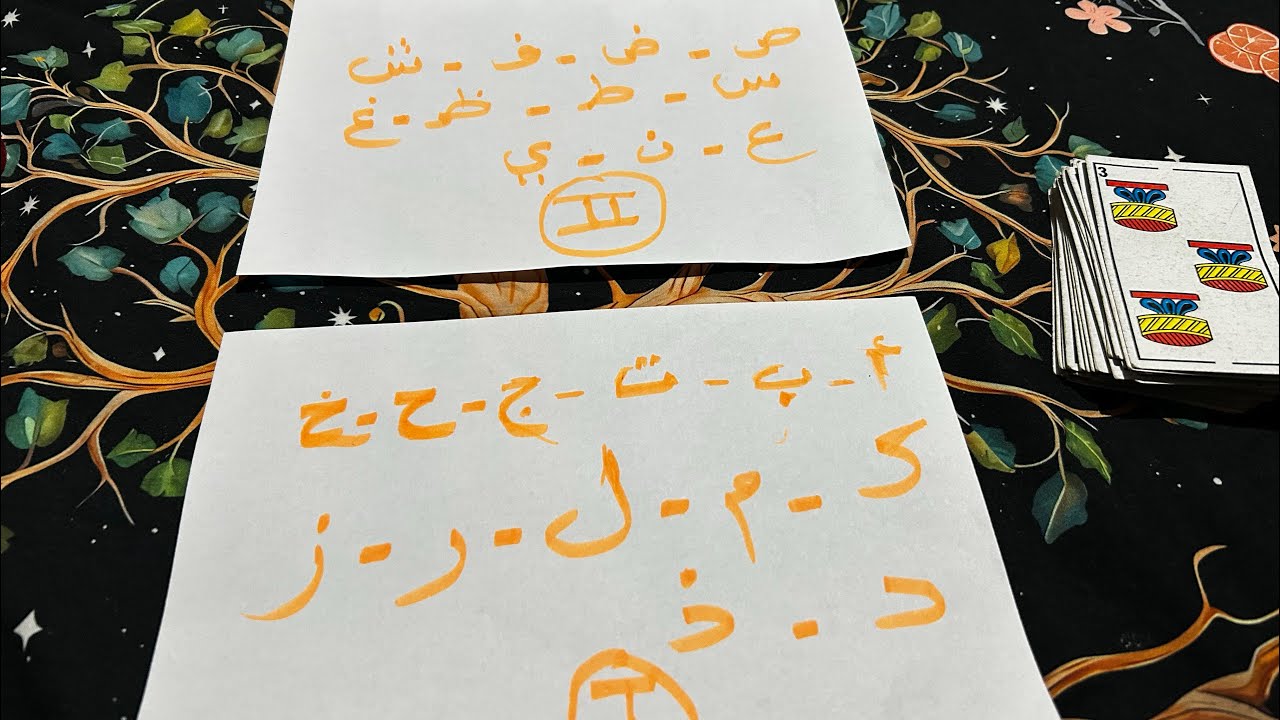 ص - ض - ف - ش
س - ط - ظ - غ
ع - ن - ي
II
أ - ب - ت - ج - ح - خ
ك - م - ل - ر - ز
د - ذ
I
3